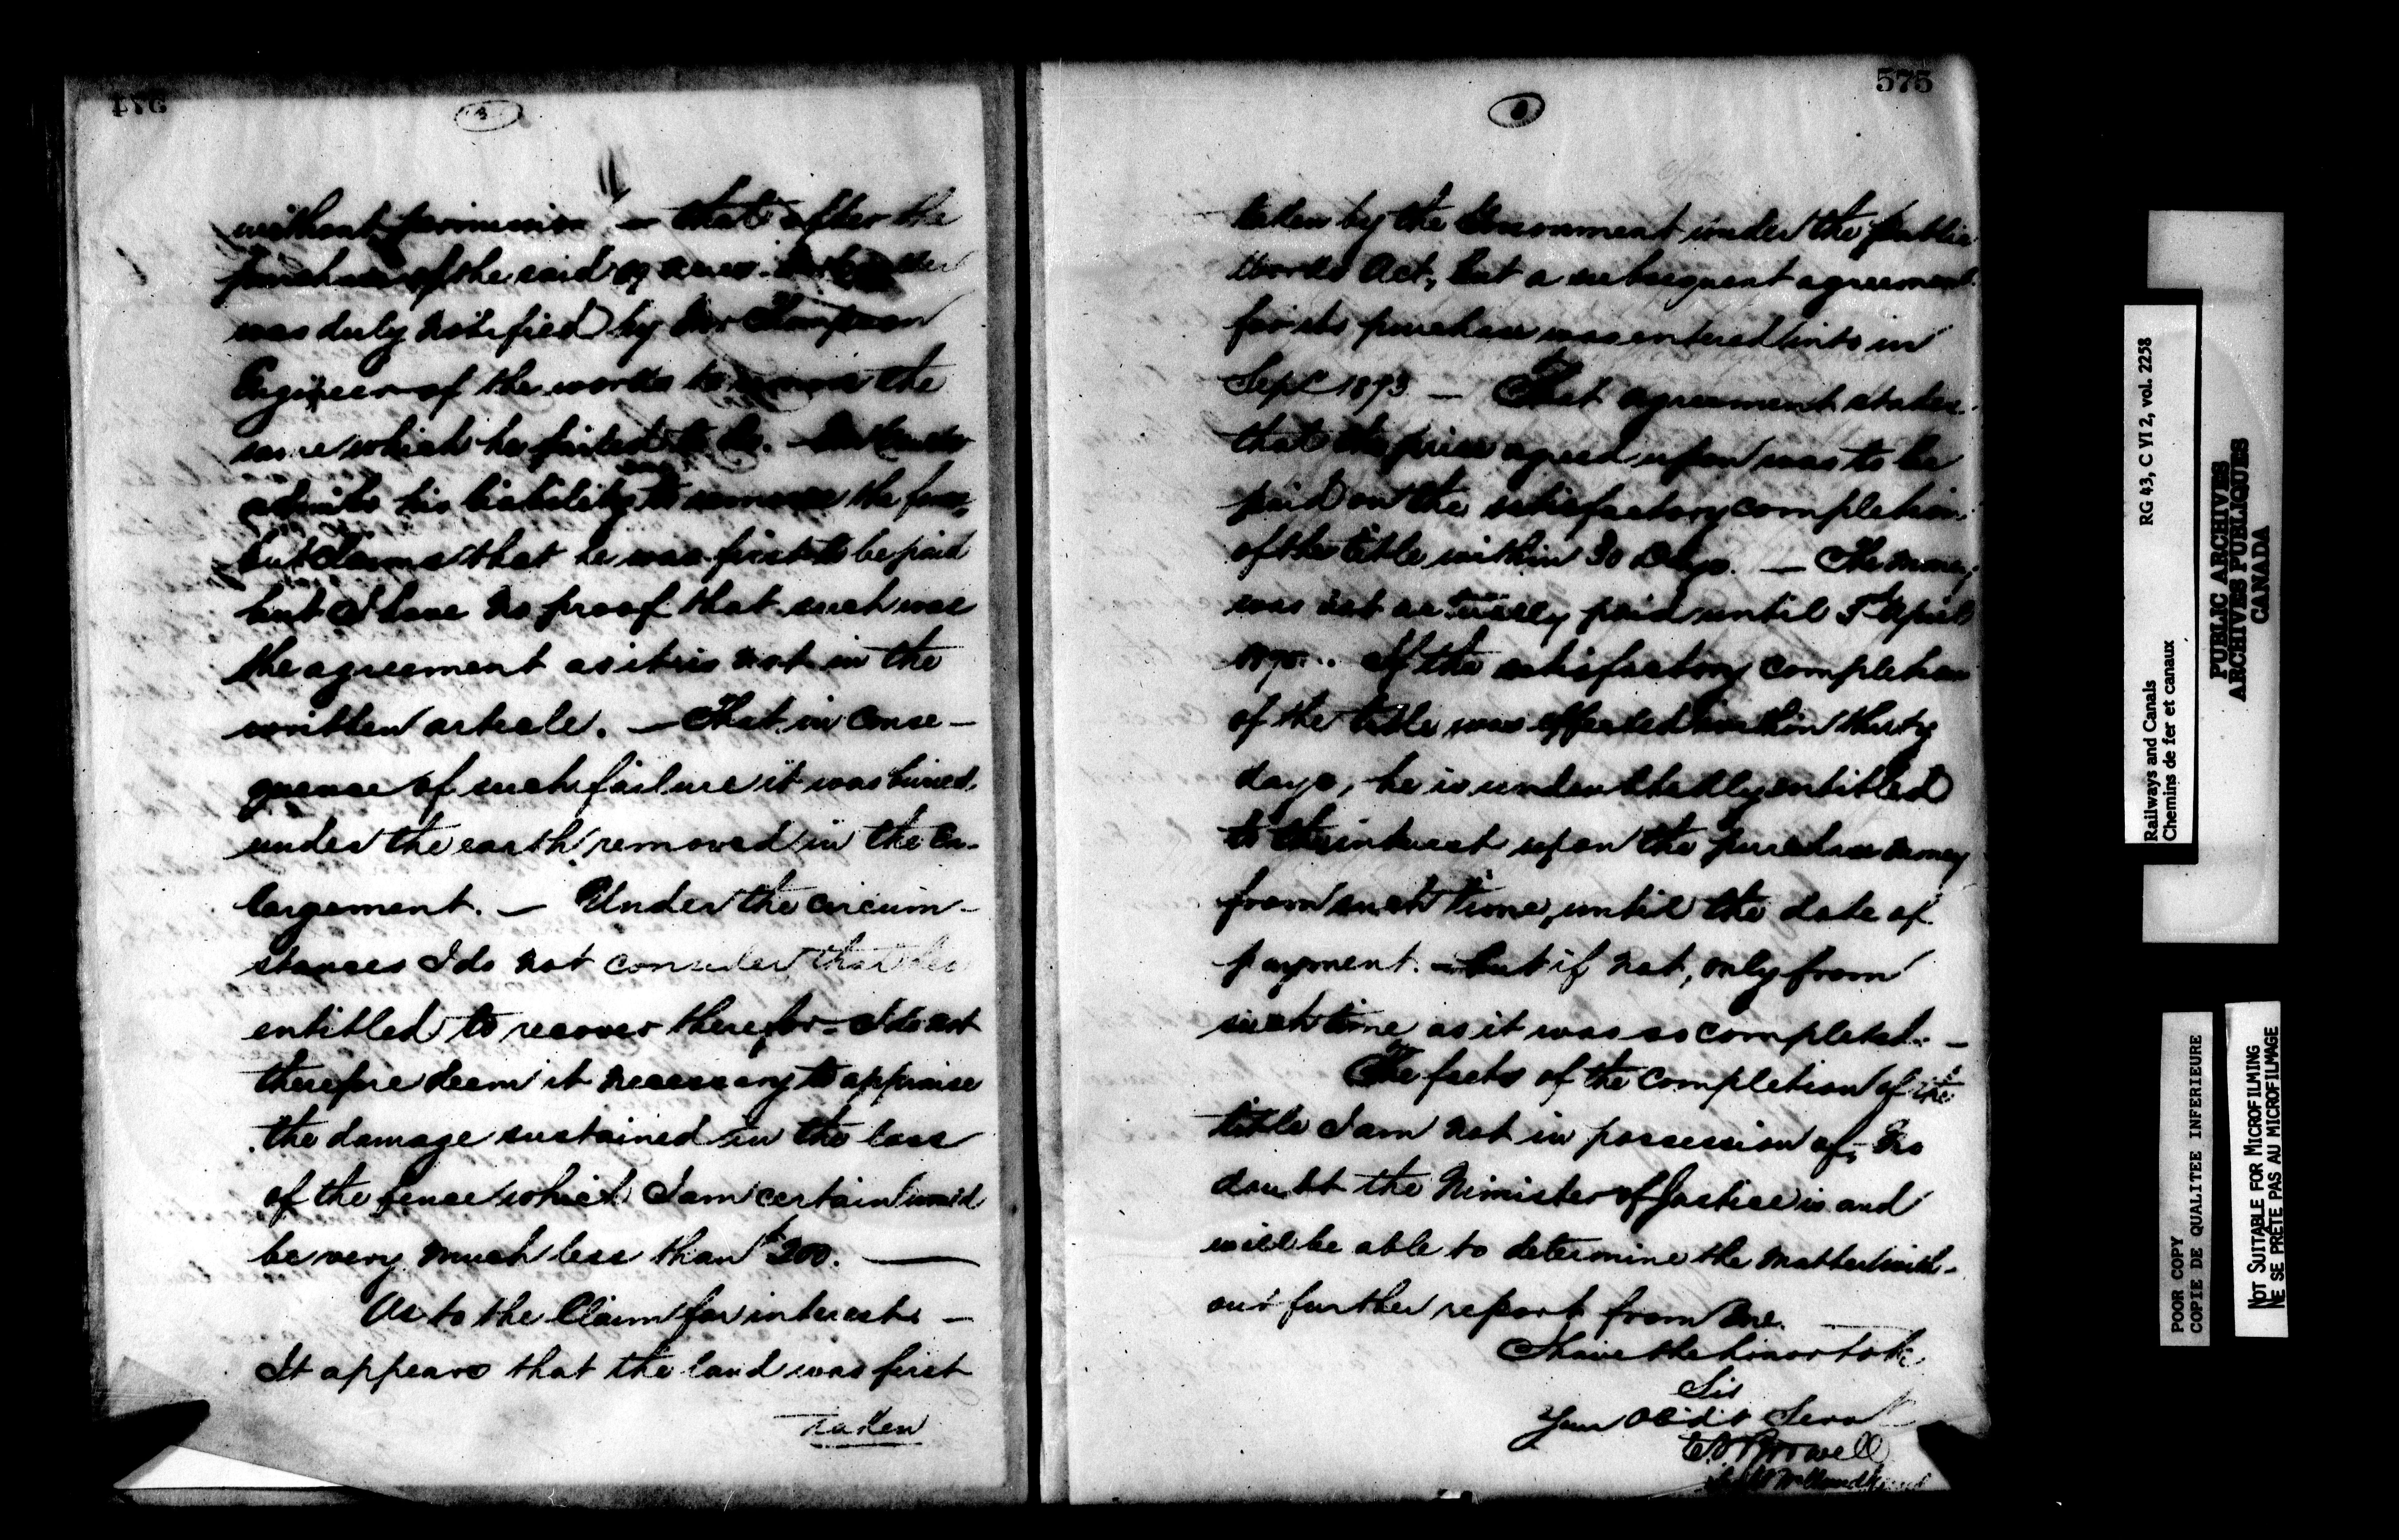 574
without permission — that after the
purchase of the said acres
was duly notified by Mr Thompson
Engineer of the works to remove the
same which he failed to do.
admits his liability to remove the fence,
but claims that he was first to be paid
but I have no proof that such was
the agreement as it is not in the
written article. — That in conse-
quence of such failure it was buried
under the earth removed in the en-
largement. — Under the circum-
stances I do not consider that he is
entitled to recover therefor — I do not
therefore deem it necessary to appraise
the damage sustained in the loss
of the fence which I am certain would
be very much less than $200. —
As to the Claim for interest —
It appears that the land was first
taken
575
taken by the Government under the public
Works Act, but a subsequent agreement
for its purchase was entered into in
Sept 1873 — That agreement states
that the price agreed upon was to be
paid on the satisfactory completion
of the title within 30 Days. — The money
was not actually paid until April
If the satisfactory completion
of the title was effected within thirty
days, he is undoubtedly entitled
to the interest upon the purchase money
from such time, until the date of
payment. — but if not, only from
such time as it was so completed. —
The facts of the completion of the
title I am not in possession of, no
doubt the Minister of Justice is and
will be able to determine the matter with-
out further report from me.
I have the honor to be
Sir
Your Obdt Servt
Railways and Canals RG 43, C VI 2, vol. 2258
Chemins de fer et canaux
PUBLIC ARCHIVES
ARCHIVES PUBLIQUES
CANADA
POOR COPY
COPIE DE QUALITEE INFERIEURE
NOT SUITABLE FOR MICROFILMING
NE SE PRÊTE PAS AU MICROFILMAGE